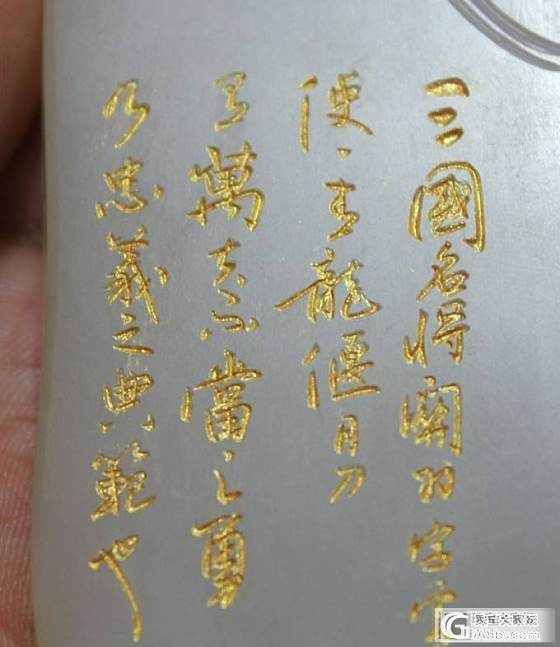 三國名将關羽字雲
使青龍偃月刀
萬夫不當之勇
乃忠義之典範也